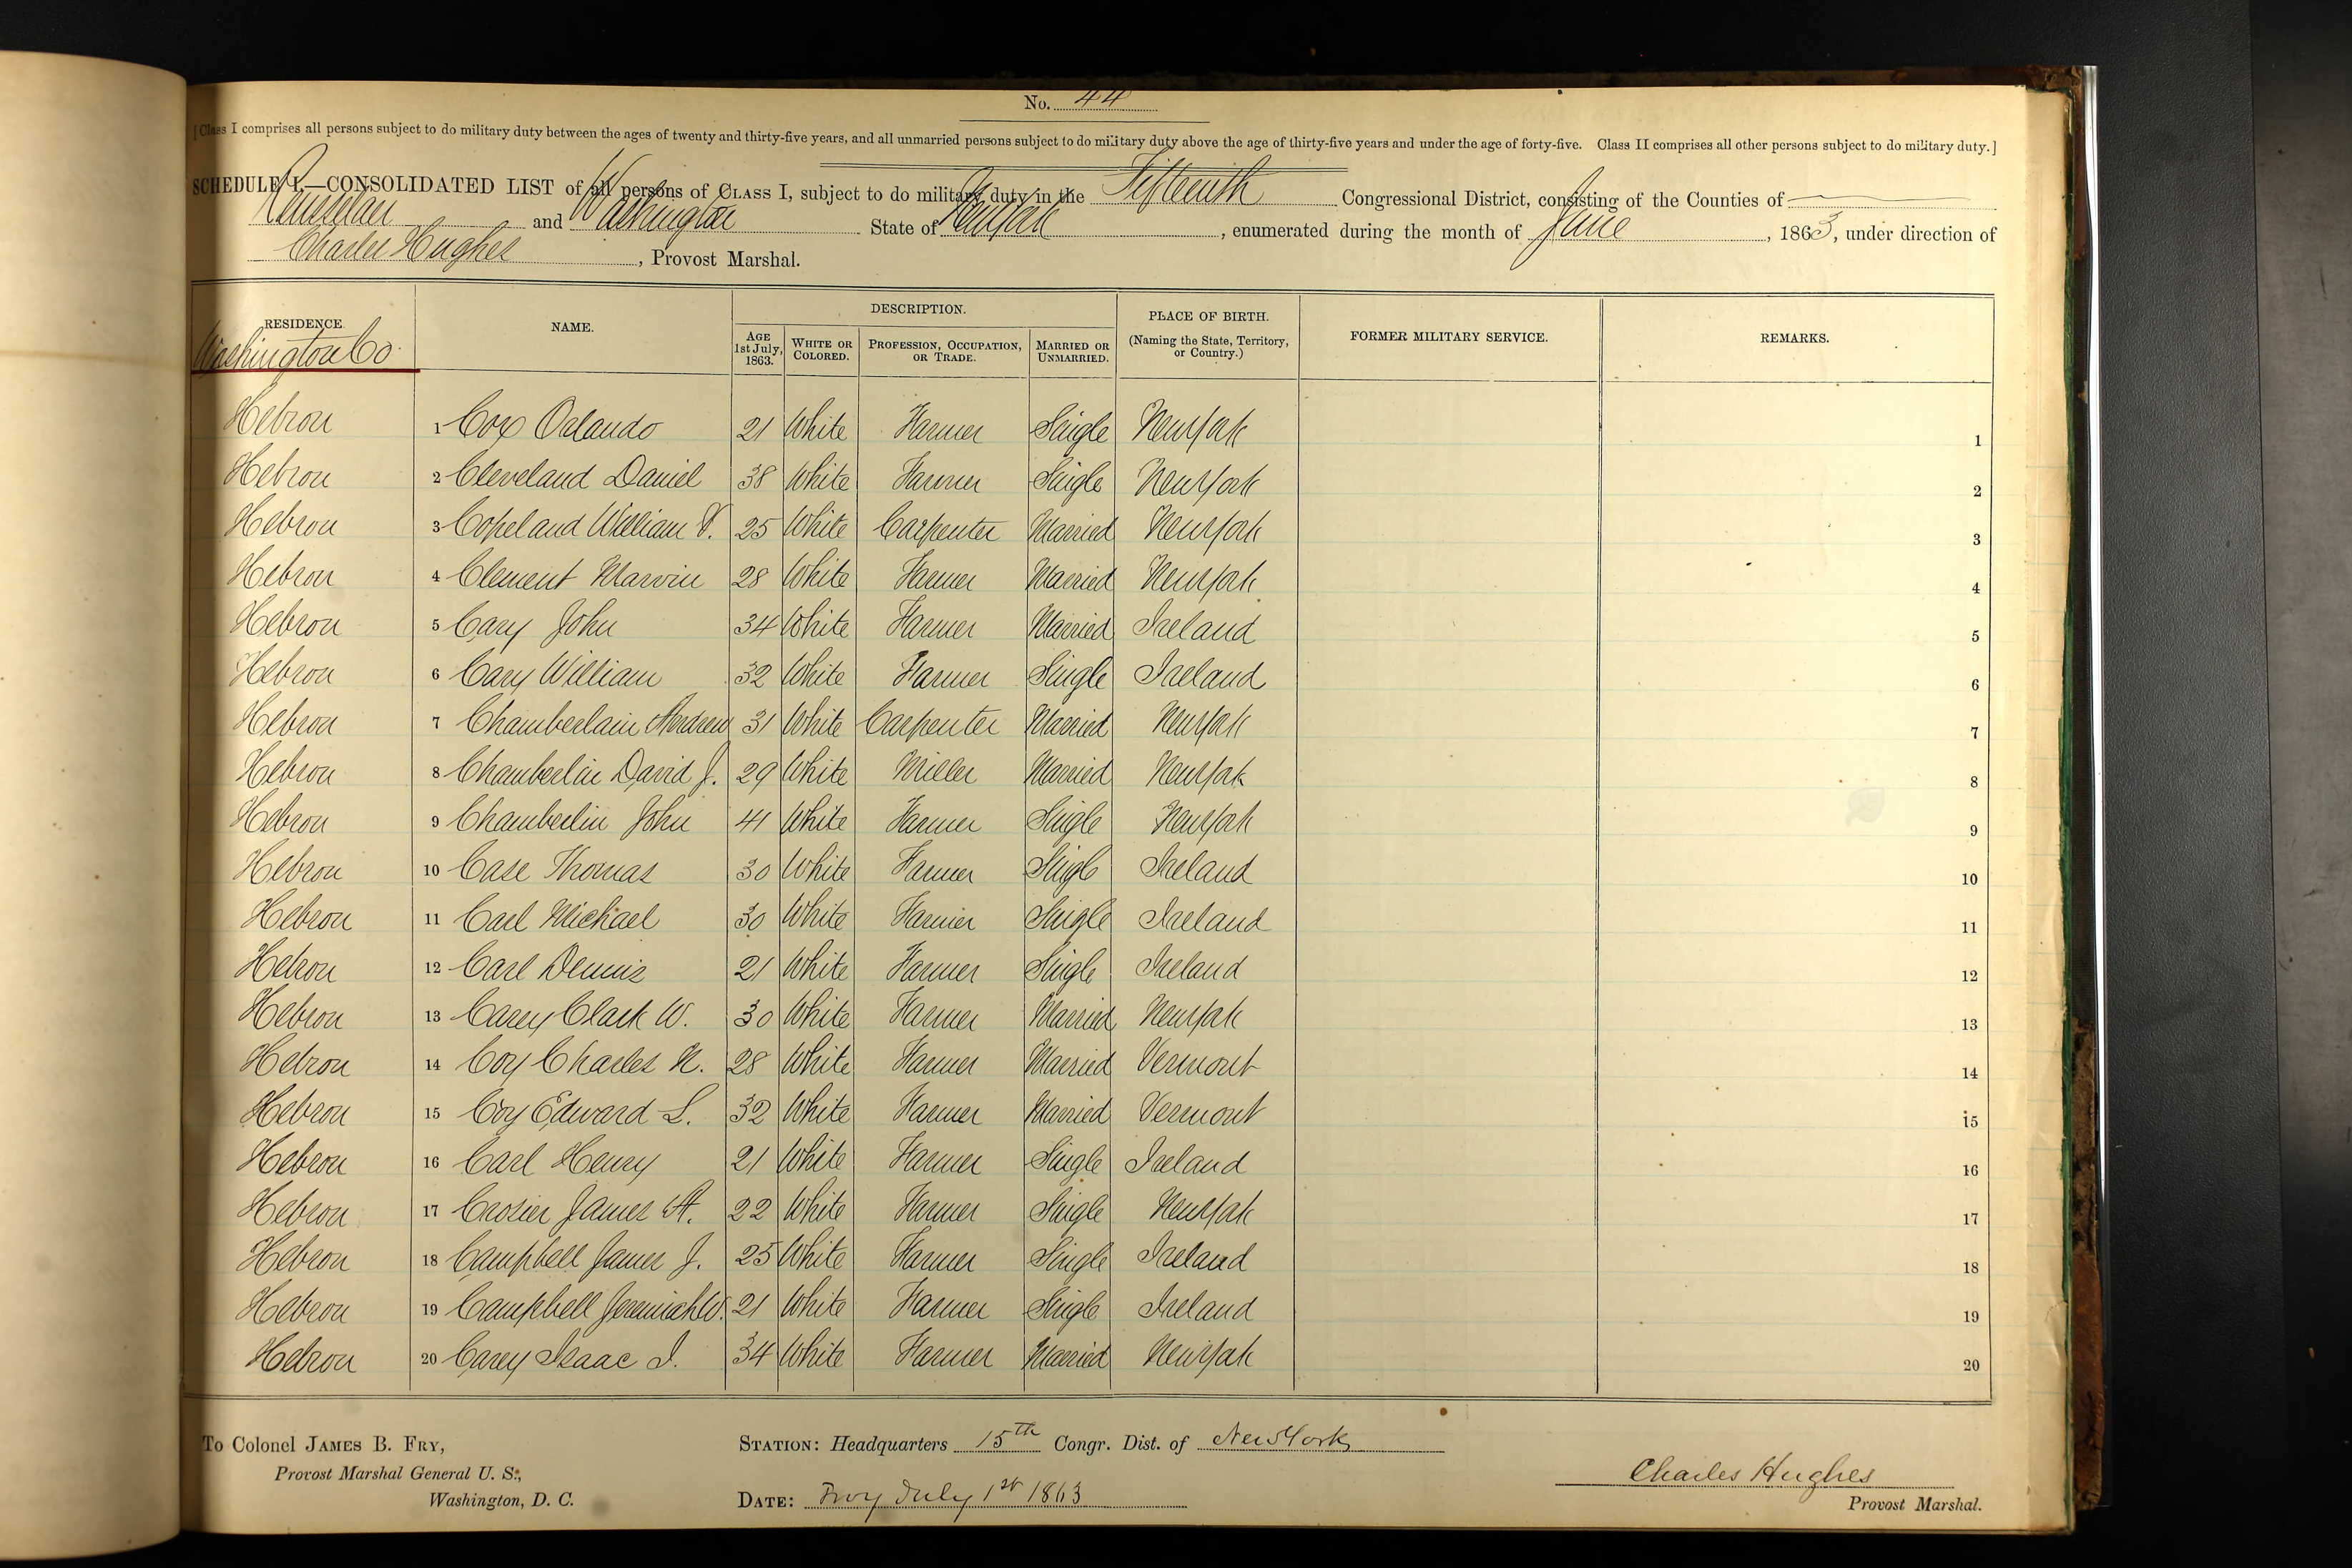 No. 44
[Class I comprises all persons subject to do military duty between the ages of twenty and thirty-five years, and all unmarried persons subject to do military duty above the age of thirty-five years and under the age of forty-five. Class II comprises all other persons subject to do military duty.]
SCHEDULE I.—CONSOLIDATED LIST of all persons of CLASS I, subject to do military duty in the Fifteenth Congressional District, consisting of the Counties of
Rensselaer and Washington State of New York, enumerated during the month of June, 1863, under direction of
Charles Hughes, Provost Marshal.
RESIDENCE. NAME. DESCRIPTION. PLACE OF BIRTH. (Naming the State, Territory, or Country.) FORMER MILITARY SERVICE. REMARKS.
AGE 1st July, 1863. WHITE OR COLORED. PROFESSION, OCCUPATION, OR TRADE. MARRIED OR UNMARRIED.
Washington Co.
Hebron 1 Cox Orlando 21 White Farmer Single New York 1
Hebron 2 Cleveland Daniel 38 White Farmer Single New York 2
Hebron 3 Copeland William V. 25 White Carpenter Married New York 3
Hebron 4 Clement Marvin 28 White Farmer Married New York 4
Hebron 5 Cary John 34 White Farmer Married Ireland 5
Hebron 6 Cary William 32 White Farmer Single Ireland 6
Hebron 7 Chamberlain Andrew 31 White Carpenter Married New York 7
Hebron 8 Chamberlin David J. 29 White Miller Married New York 8
Hebron 9 Chamberlin John 41 White Farmer Single New York 9
Hebron 10 Case Thomas 30 White Farmer Single Ireland 10
Hebron 11 Carl Michael 30 White Farmer Single Ireland 11
Hebron 12 Carl Dennis 21 White Farmer Single Ireland 12
Hebron 13 Carey Clark W. 30 White Farmer Married New York 13
Hebron 14 Coy Charles N. 28 White Farmer Married Vermont 14
Hebron 15 Coy Edward L. 32 White Farmer Married Vermont 15
Hebron 16 Carl Henry 21 White Farmer Single Ireland 16
Hebron 17 Crosier James A. 22 White Farmer Single New York 17
Hebron 18 Campbell James J. 25 White Farmer Single Ireland 18
Hebron 19 Campbell Jeremiah W. 21 White Farmer Single Ireland 19
Hebron 20 Carey Isaac I. 34 White Farmer Married New York 20
To Colonel JAMES B. FRY, STATION: Headquarters 15th Congr. Dist. of New York
Provost Marshal General U. S., Charles Hughes
Washington, D. C. DATE: Troy July 1st 1863 Provost Marshal.